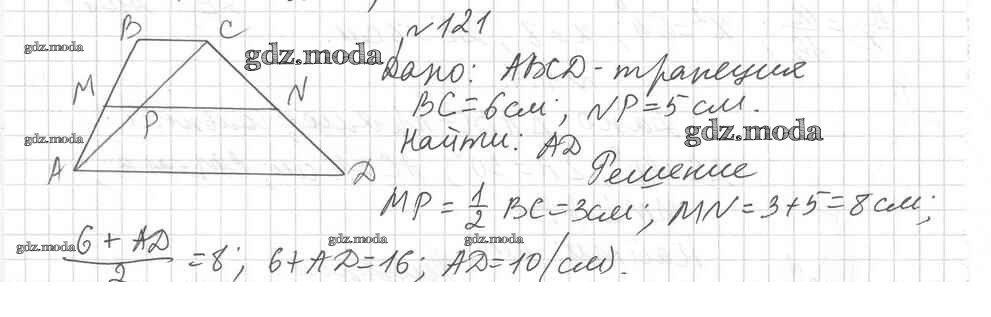 B C
gdz.moda
gdz.moda
№121
Дано: ABCD - трапеция
M N
P
BC = 6 см; NP = 5 см.
gdz.moda
gdz.moda
Найти: AD
A D
Решение
MP = 1/2 BC = 3 см; MN = 3 + 5 = 8 см;
gdz.moda
gdz.moda
gdz.moda
(6 + AD)/2 = 8; 6 + AD = 16; AD = 10 (см).